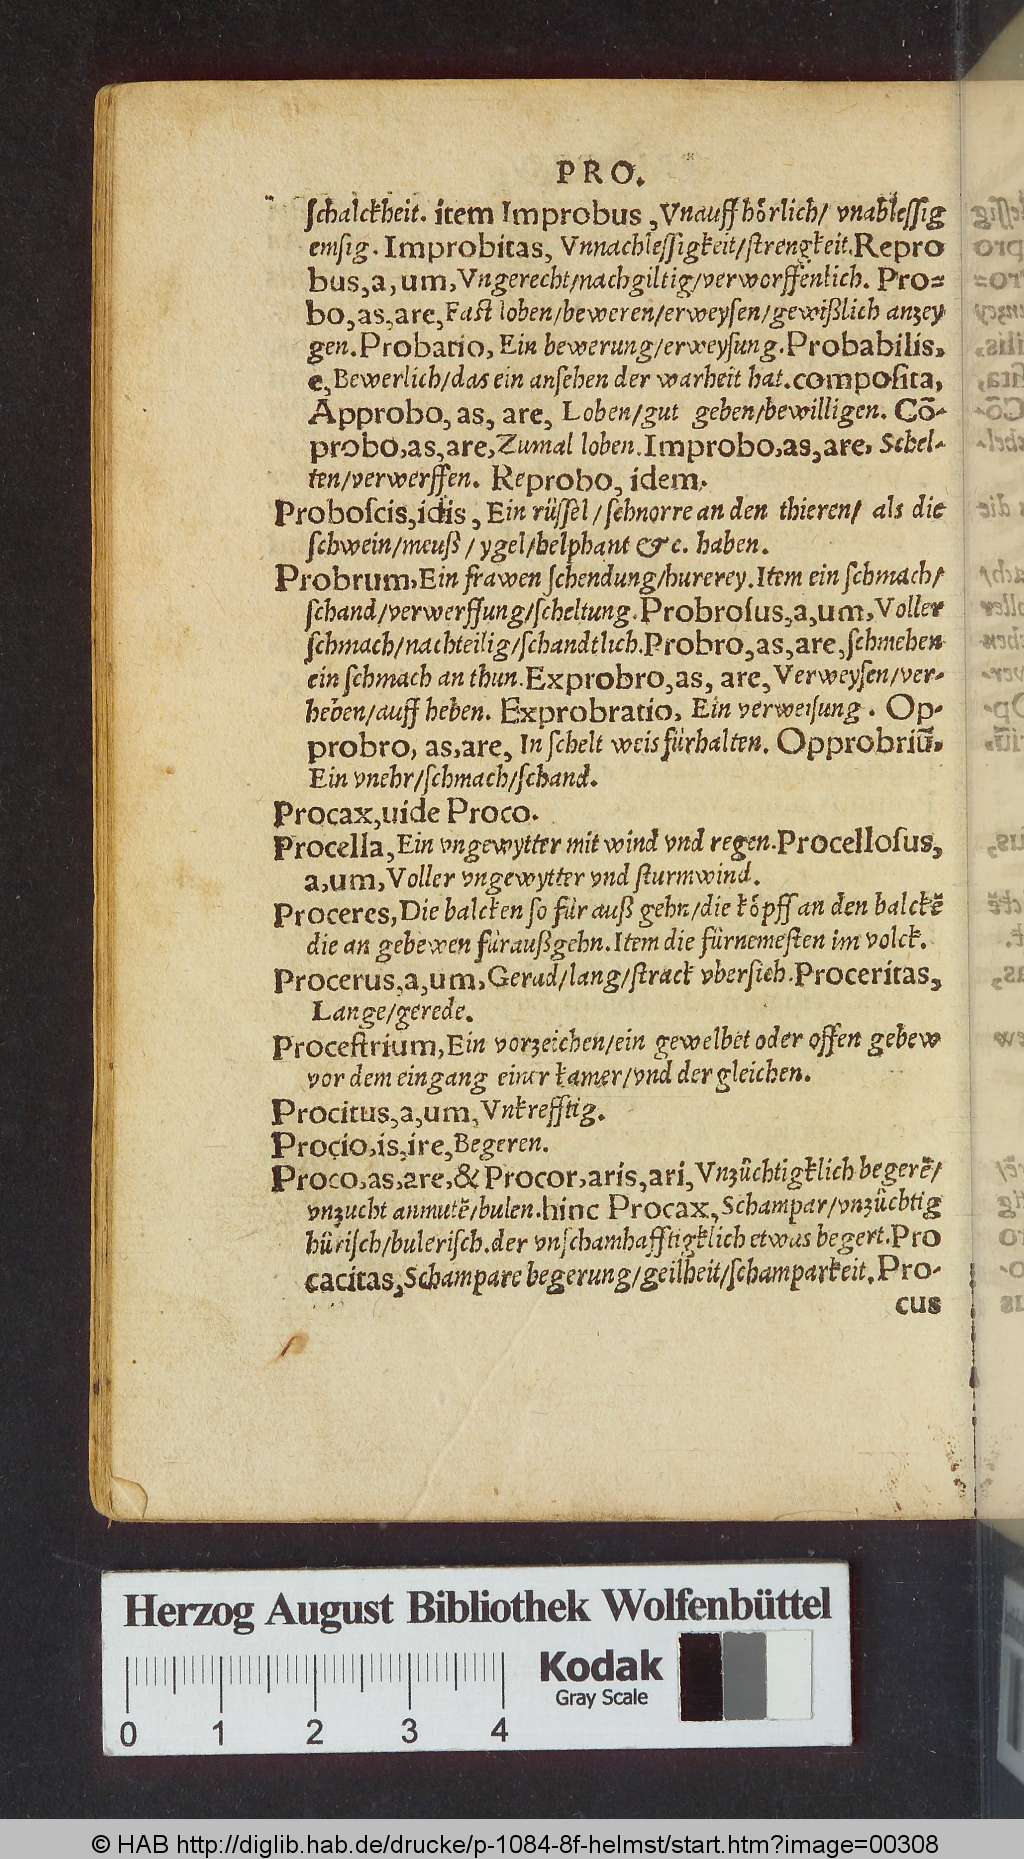 PRO.
ſchalckheit. item Improbus, Vnauffhörlich/ vnableſſig
emſig. Improbitas, Vnnachleſſigkeit/ſtrengkeit. Repro
bus, a, um, Vngerecht/nachgiltig/verworffenlich. Pro=
bo, as, are, Faſt loben/beweren/erweyſen/gewißlich anzey
gen. Probatio, Ein bewerung/erweyſung. Probabilis,
e, Bewerlich/das ein anſehen der warheit hat. compoſita,
Approbo, as, are, Loben/gut geben/bewilligen. Cõ-
probo, as, are, Zumal loben. Improbo, as, are, Schel-
ten/verwerffen. Reprobo, idem.
Proboſcis, idis, Ein rüſſel/ſchnorre an den thieren/ als die
ſchwein/meuß/ygel/helphant &c. haben.
Probrum, Ein frawen ſchendung/hurerey. Item ein ſchmach/
ſchand/verwerffung/ſcheltung. Probroſus, a, um, Voller
ſchmach/nachteilig/ſchandtlich. Probro, as, are, ſchmehen
ein ſchmach an thun. Exprobro, as, are, Verweyſen/ver-
heben/auff heben. Exprobratio, Ein verweiſung. Op-
probro, as, are, In ſchelt weis fürhalten. Opprobriũ,
Ein vnehr/ſchmach/ſchand.
Procax, uide Proco.
Procella, Ein vngewytter mit wind vnd regen. Procelloſus,
a, um, Voller vngewytter vnd ſturmwind.
Proceres, Die balcken ſo für auß gehn/die köpff an den balckẽ
die an gebewen füraußgehn. Item die fürnemeſten im volck.
Procerus, a, um, Gerad/lang/ſtrack vberſich. Proceritas,
Lange/gerede.
Proceſtrium, Ein vorzeichen/ein gewelbet oder offen gebew
vor dem eingang einer kamer/vnd der gleichen.
Procitus, a, um, Vnkrefftig.
Procio, is, ire, Begeren.
Proco, as, are, & Procor, aris, ari, Vnzüchtigklich begerẽ/
vnzucht anmutẽ/bulen. hinc Procax, Schampar/vnzüchtig
hüriſch/buleriſch. der vnſchamhafftigklich etwas begert. Pro
cacitas, Schampare begerung/geilheit/ſchamparkeit. Pro-
cus
Herzog August Bibliothek Wolfenbüttel
Kodak
Gray Scale
0 1 2 3 4
© HAB http://diglib.hab.de/drucke/p-1084-8f-helmst/start.htm?image=00308